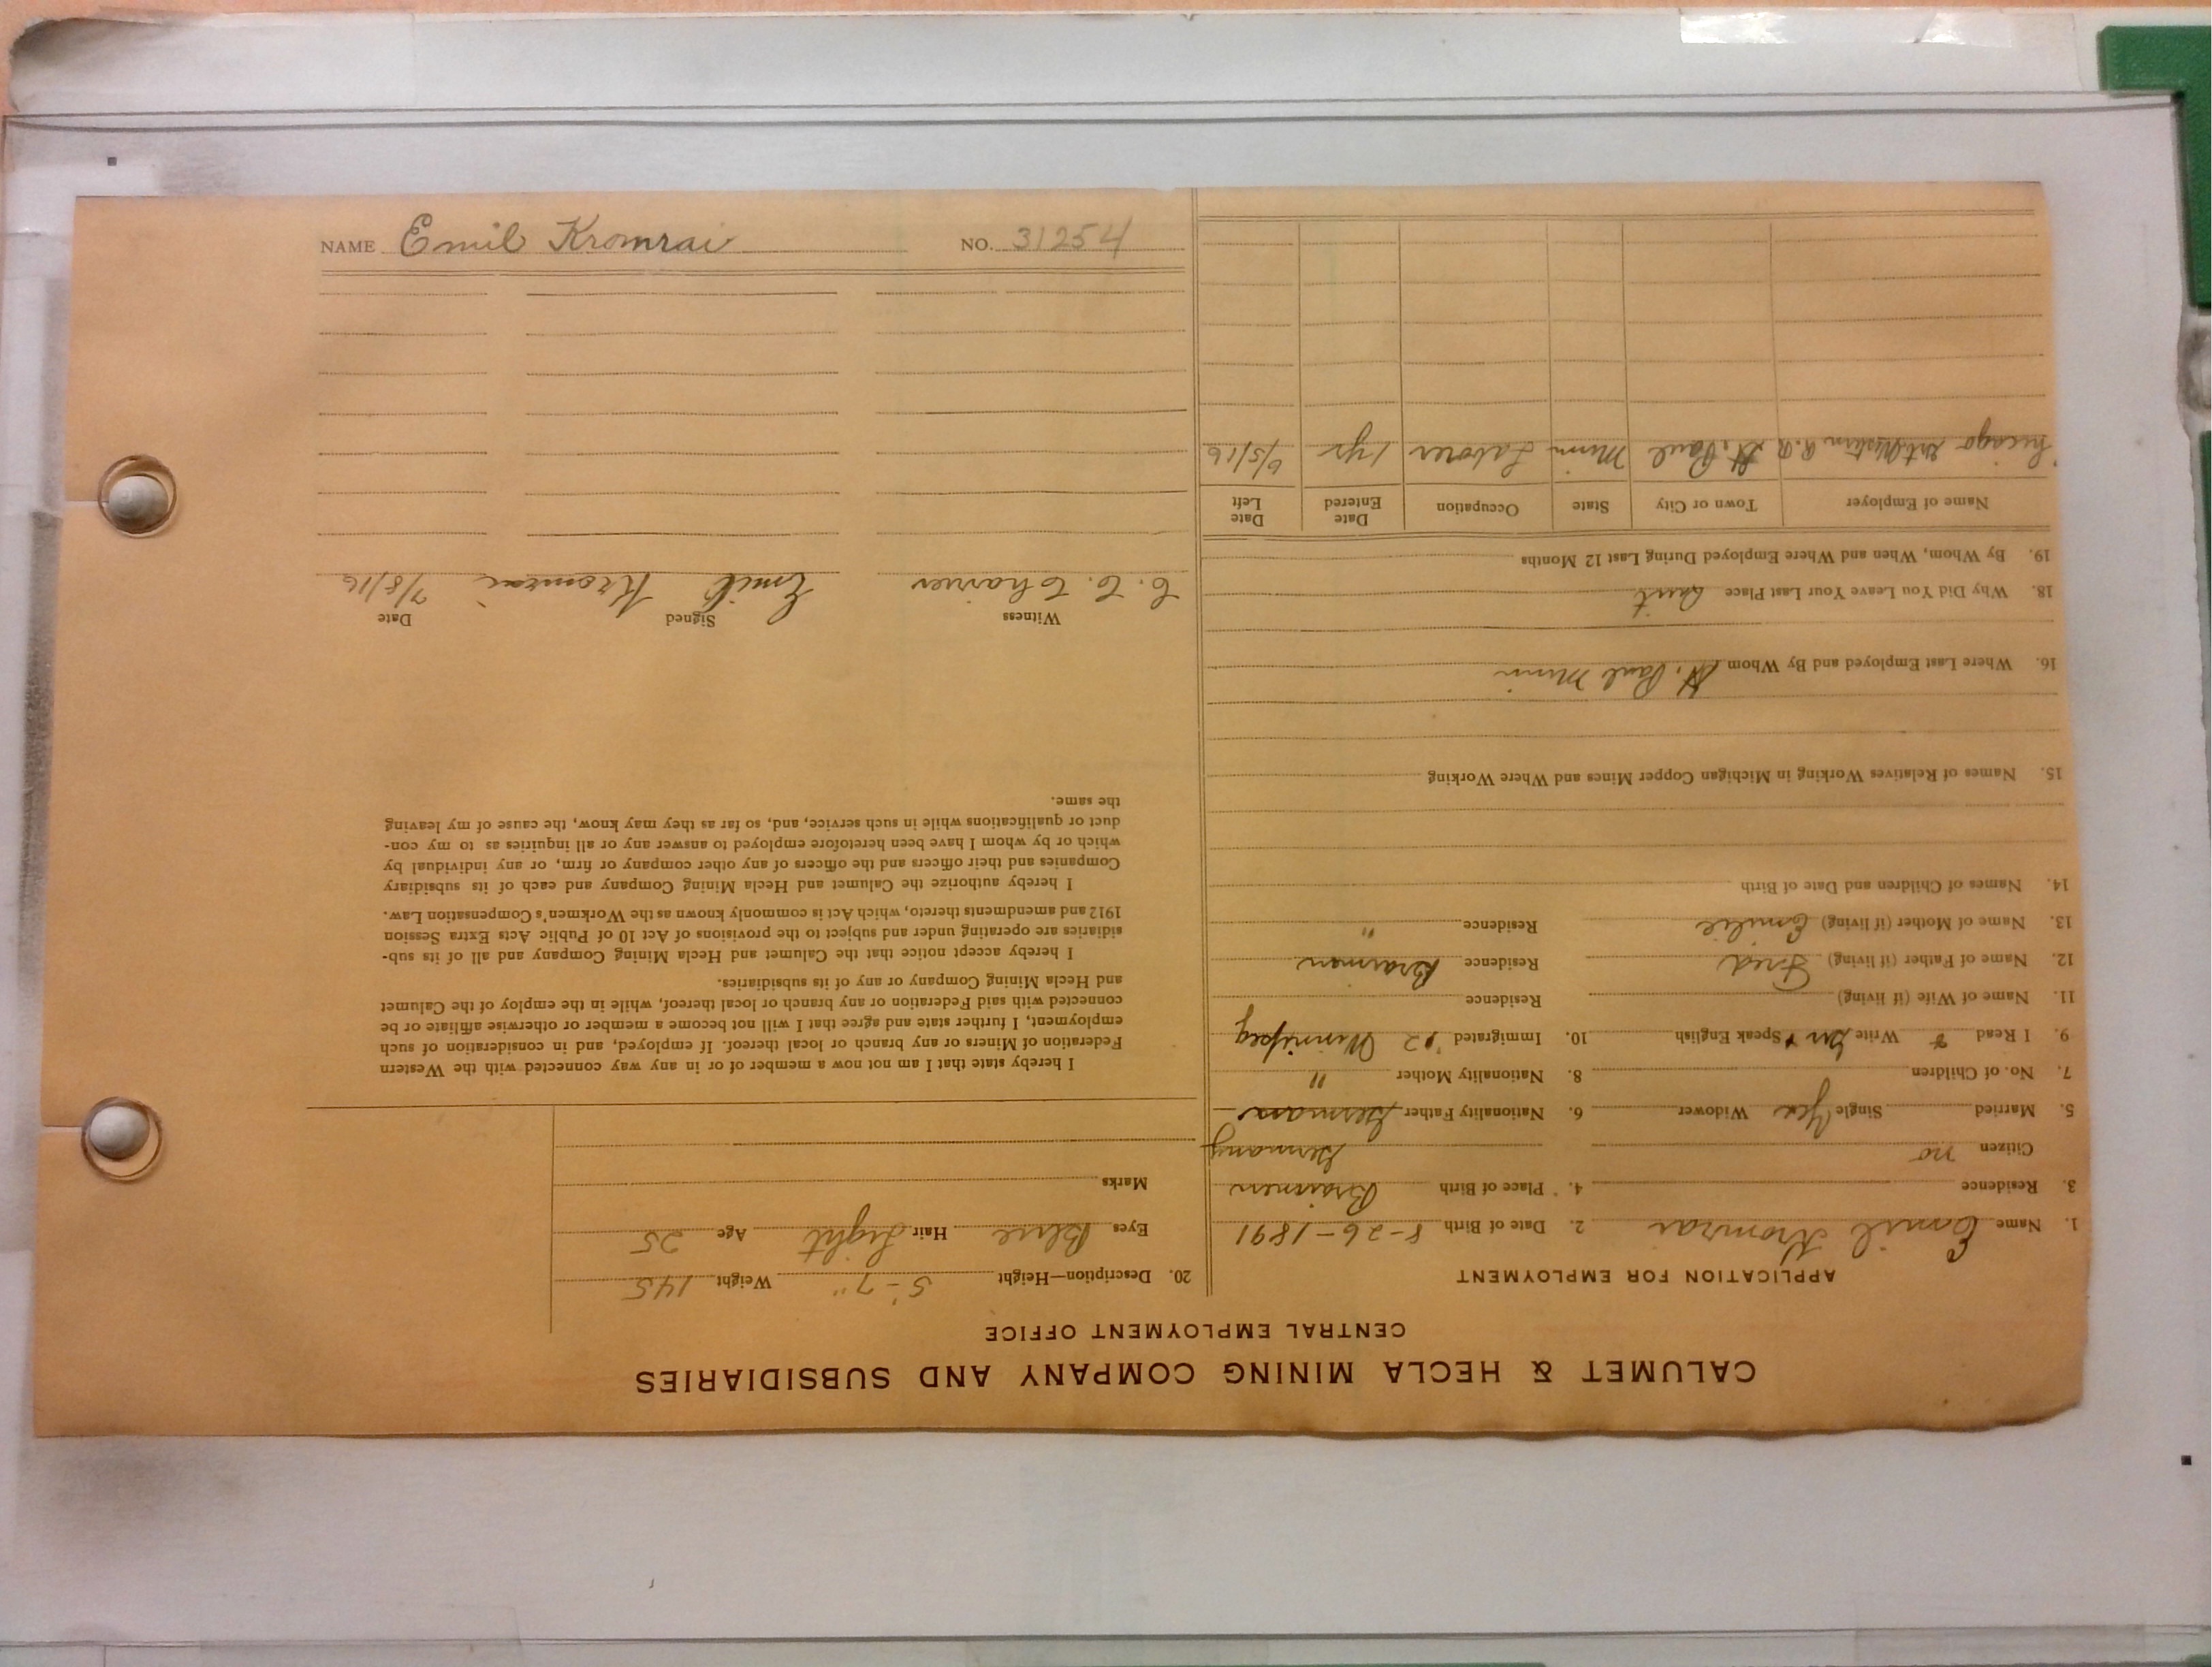 CALUMET & HECLA MINING COMPANY AND SUBSIDIARIES
CENTRAL EMPLOYMENT OFFICE
APPLICATION FOR EMPLOYMENT
1. Name Emil Kromrai 2. Date of Birth 8-26-1891
3. Residence 4. Place of Birth Braimen
Citizen no Germany
5. Married Single Yes Widower 6. Nationality Father German
7. No. of Children 8. Nationality Mother "
9. I Read & Write Speak English 10. Immigrated '12 Winnipeg
11. Name of Wife (if living) Residence
12. Name of Father (if living) Fred Residence Braimen
13. Name of Mother (if living) Emilie Residence "
14. Names of Children and Date of Birth
15. Names of Relatives Working in Michigan Copper Mines and Where Working
16. Where Last Employed and By Whom St. Paul Minn
18. Why Did You Leave Your Last Place Quit
19. By Whom, When and Where Employed During Last 12 Months
Name of Employer Town or City State Occupation Date Entered Date Left
Chicago Grt Western R.R. St. Paul Minn Laborer 1 yr 6/5/16
20. Description—Height 5'-7" Weight 145
Eyes Blue Hair Light Age 25
Marks
I hereby state that I am not now a member of or in any way connected with the Western
Federation of Miners or any branch or local thereof. If employed, and in consideration of such
employment, I further state and agree that I will not become a member or otherwise affiliate or be
connected with said Federation or any branch or local thereof, while in the employ of the Calumet
and Hecla Mining Company or any of its subsidiaries.
I hereby accept notice that the Calumet and Hecla Mining Company and all of its sub-
sidiaries are operating under and subject to the provisions of Act 10 of Public Acts Extra Session
1912 and amendments thereto, which Act is commonly known as the Workmen's Compensation Law.
I hereby authorize the Calumet and Hecla Mining Company and each of its subsidiary
Companies and their officers and the officers of any other company or firm, or any individual by
which or by whom I have been heretofore employed to answer any or all inquiries as to my con-
duct or qualifications while in such service, and, so far as they may know, the cause of my leaving
the same.
Witness Signed Date
C. C. Charier Emil Kromrai 7/8/16
NAME Emil Kromrai NO. 31254